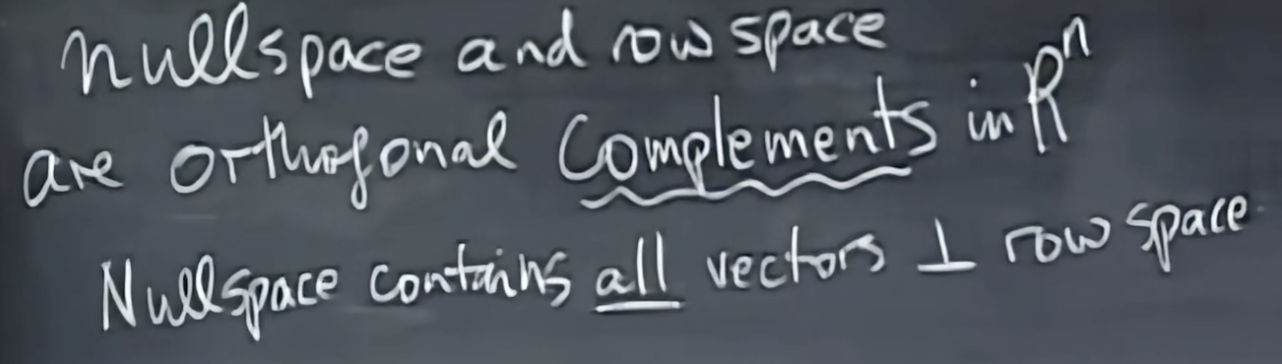 nullspace and row space
are orthogonal complements in Rⁿ
Nullspace contains all vectors ⊥ row space.